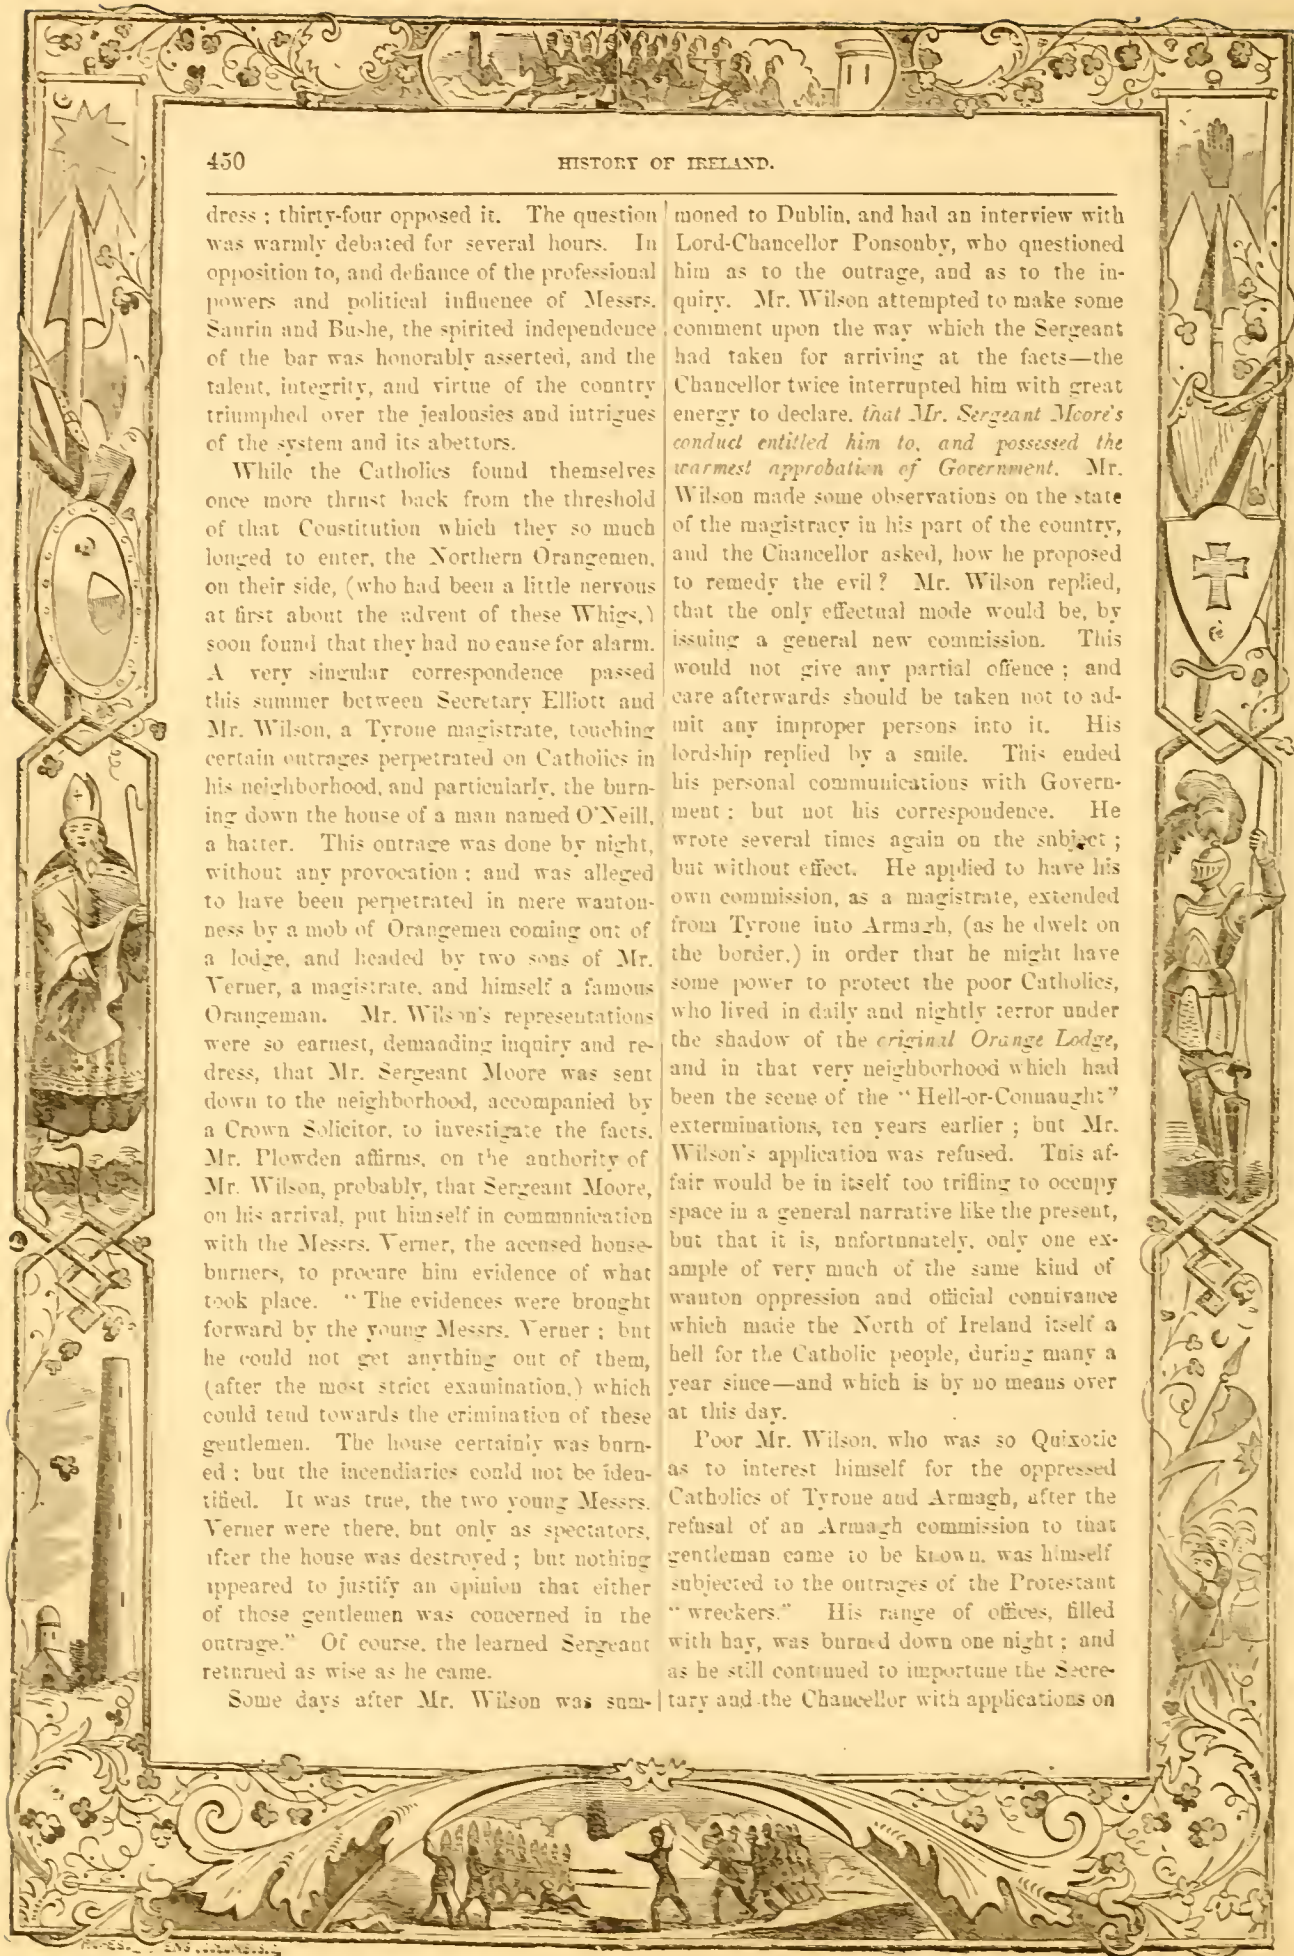 450
HISTORY OF IRELAND.
dress ; thirty-four opposed it. The question
was warmly debated for several hours. In
opposition to, and defiance of the professional
powers and political influence of Messrs.
Saurin and Bushe, the spirited independence
of the bar was honorably asserted, and the
talent, integrity, and virtue of the country
triumphed over the jealousies and intrigues
of the system and its abettors.
While the Catholics found themselves
once more thrust back from the threshold
of that Constitution which they so much
longed to enter, the Northern Orangemen,
on their side, (who had been a little nervous
at first about the advent of these Whigs,)
soon found that they had no cause for alarm.
A very singular correspondence passed
this summer between Secretary Elliott and
Mr. Wilson, a Tyrone magistrate, touching
certain outrages perpetrated on Catholics in
his neighborhood, and particularly, the burn-
ing down the house of a man named O'Neill,
a hatter. This outrage was done by night,
without any provocation ; and was alleged
to have been perpetrated in mere wanton-
ness by a mob of Orangemen coming out of
a lodge, and headed by two sons of Mr.
Verner, a magistrate, and himself a famous
Orangeman. Mr. Wilson's representations
were so earnest, demanding inquiry and re-
dress, that Mr. Sergeant Moore was sent
down to the neighborhood, accompanied by
a Crown Solicitor, to investigate the facts.
Mr. Plowden affirms, on the authority of
Mr. Wilson, probably, that Sergeant Moore,
on his arrival, put himself in communication
with the Messrs. Verner, the accused house-
burners, to procure him evidence of what
took place. " The evidences were brought
forward by the young Messrs. Verner ; but
he could not get anything out of them,
(after the most strict examination,) which
could tend towards the crimination of these
gentlemen. The house certainly was burn-
ed ; but the incendiaries could not be iden-
tified. It was true, the two young Messrs.
Verner were there, but only as spectators,
after the house was destroyed ; but nothing
appeared to justify an opinion that either
of those gentlemen was concerned in the
outrage." Of course, the learned Sergeant
returned as wise as he came.
Some days after Mr. Wilson was sum-
moned to Dublin, and had an interview with
Lord-Chancellor Ponsonby, who questioned
him as to the outrage, and as to the in-
quiry. Mr. Wilson attempted to make some
comment upon the way which the Sergeant
had taken for arriving at the facts—the
Chancellor twice interrupted him with great
energy to declare, that Mr. Sergeant Moore's
conduct entitled him to, and possessed the
warmest approbation of Government. Mr.
Wilson made some observations on the state
of the magistracy in his part of the country,
and the Chancellor asked, how he proposed
to remedy the evil ? Mr. Wilson replied,
that the only effectual mode would be, by
issuing a general new commission. This
would not give any partial offence ; and
care afterwards should be taken not to ad-
mit any improper persons into it. His
lordship replied by a smile. This ended
his personal communications with Govern-
ment ; but not his correspondence. He
wrote several times again on the subject ;
but without effect. He applied to have his
own commission, as a magistrate, extended
from Tyrone into Armagh, (as he dwelt on
the border,) in order that he might have
some power to protect the poor Catholics,
who lived in daily and nightly terror under
the shadow of the original Orange Lodge,
and in that very neighborhood which had
been the scene of the " Hell-or-Connaught"
exterminations, ten years earlier ; but Mr.
Wilson's application was refused. This af-
fair would be in itself too trifling to occupy
space in a general narrative like the present,
but that it is, unfortunately, only one ex-
ample of very much of the same kind of
wanton oppression and official connivance
which made the North of Ireland itself a
hell for the Catholic people, during many a
year since—and which is by no means over
at this day.
Poor Mr. Wilson, who was so Quixotic
as to interest himself for the oppressed
Catholics of Tyrone and Armagh, after the
refusal of an Armagh commission to that
gentleman came to be known, was himself
subjected to the outrages of the Protestant
" wreckers." His range of offices, filled
with hay, was burned down one night ; and
as he still continued to importune the Secre-
tary and the Chancellor with applications on